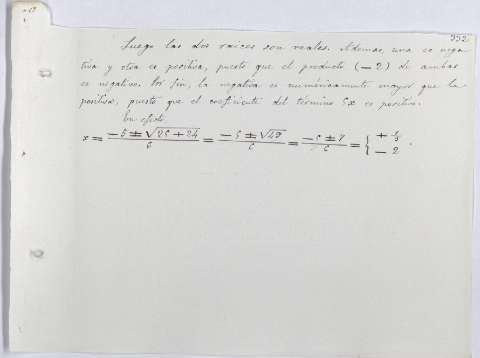 332
Luego las dos raices son reales. Ademas, una es nega-
tiva y otra es positiva, puesto que el producto (-2) de ambas
es negativo. Por fin, la negativa es numéricamente mayor que la
positiva, puesto que el coeficiente del término 5x es positivo.
En efecto
x = \frac{-5 ± \sqrt{25 + 24}}{6} = \frac{-5 ± \sqrt{49}}{6} = \frac{-5 ± 7}{6} = { + \frac{1}{3} - 2 .